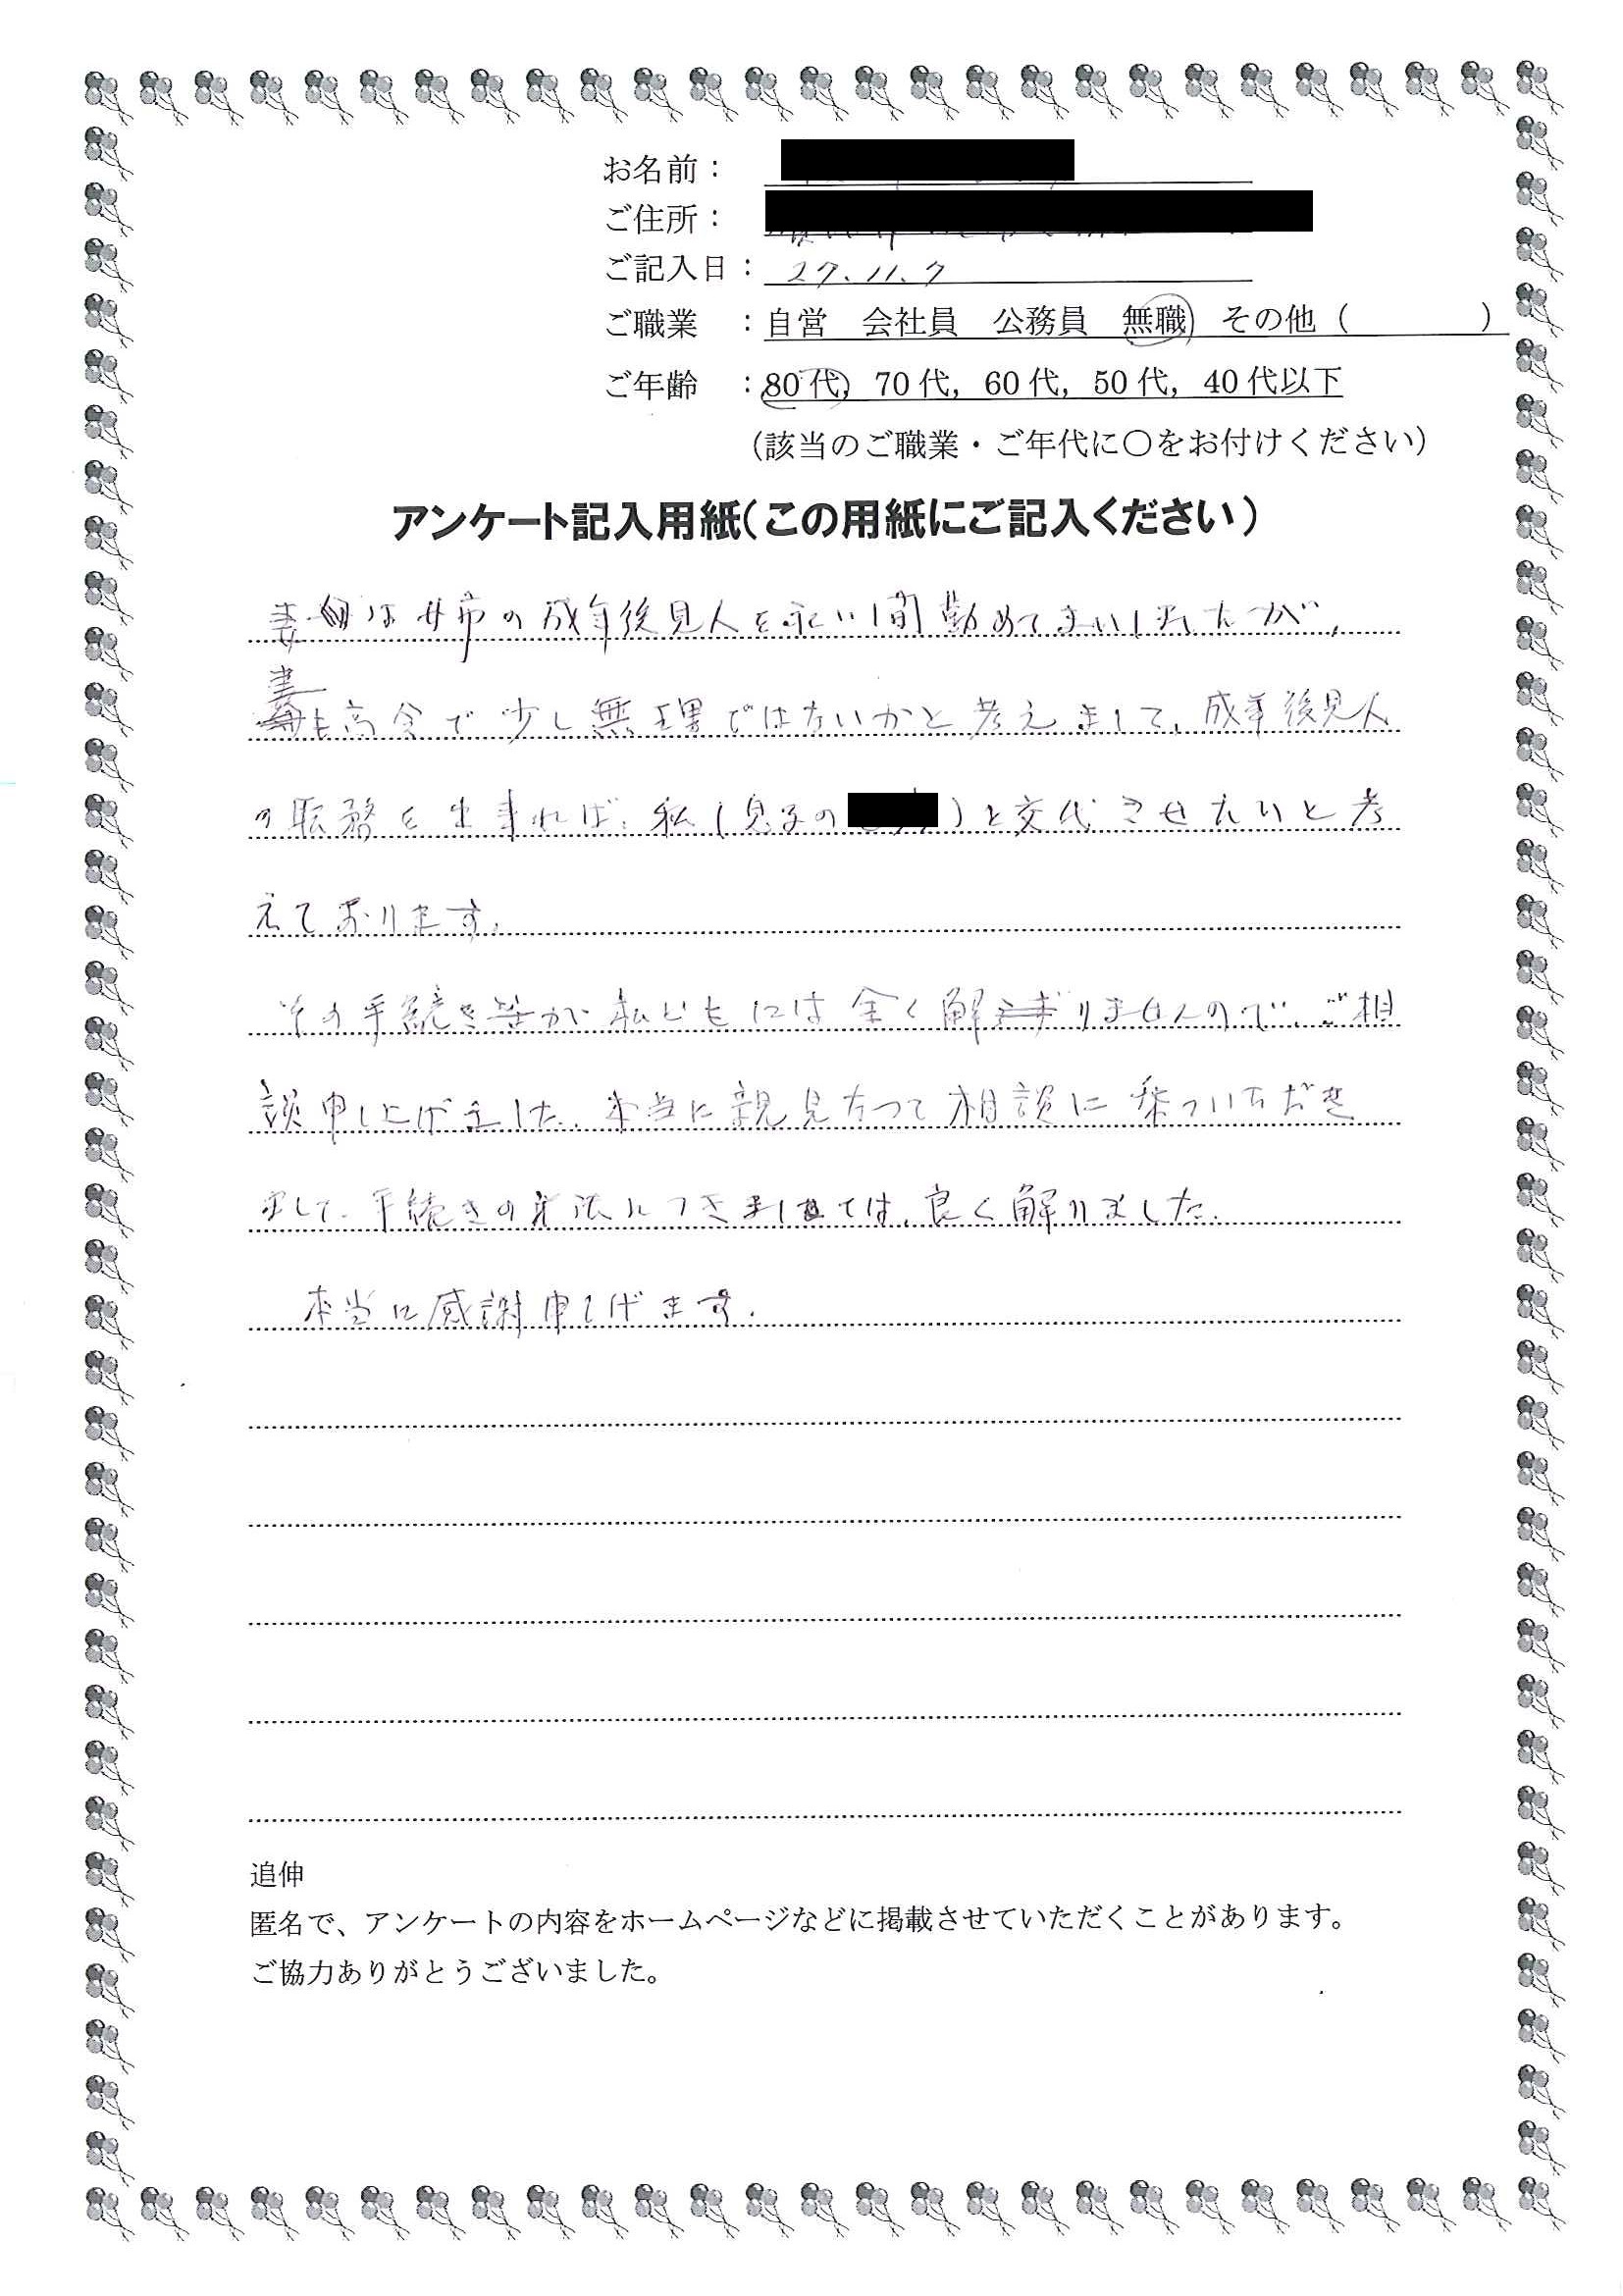 お名前：
ご住所：
ご記入日： 27.11.7
ご職業　：自営　会社員　公務員　無職　その他（　　　　）
ご年齢　：80代，70代，60代，50代，40代以下
（該当のご職業・ご年代に○をお付けください）
アンケート記入用紙（この用紙にご記入ください）
妻は の成年後見人を永い間勤めてまいしれたが、
妻も高令で少し無理ではないかと考えまして、成年後見人
の職務を出来れば、私（息子の　）と交代させたいと考
えております。
その手続き等が私どもには全く解りませんので、ご相
談申し上げました。本当に親見なって相談に乗ついただき
まして、手続きの方法につきましては、良く解りました。
本当に感謝申し上げます。
追伸
匿名で、アンケートの内容をホームページなどに掲載させていただくことがあります。
ご協力ありがとうございました。